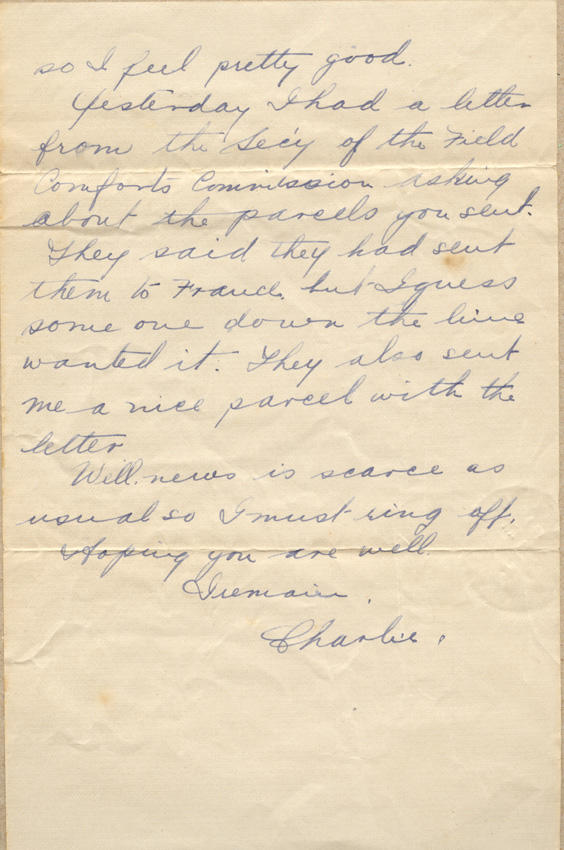 so I feel pretty good.
Yesterday I had a letter
from the Sec'y of the Field
Comforts Commission asking
about the parcels you sent.
They said they had sent
them to France, but I guess
some one down the line
wanted it. They also sent
me a nice parcel with the
letter
Will. news is scarce as
usual so I must ring off.
Hoping you are well
I remain,
Charlie.